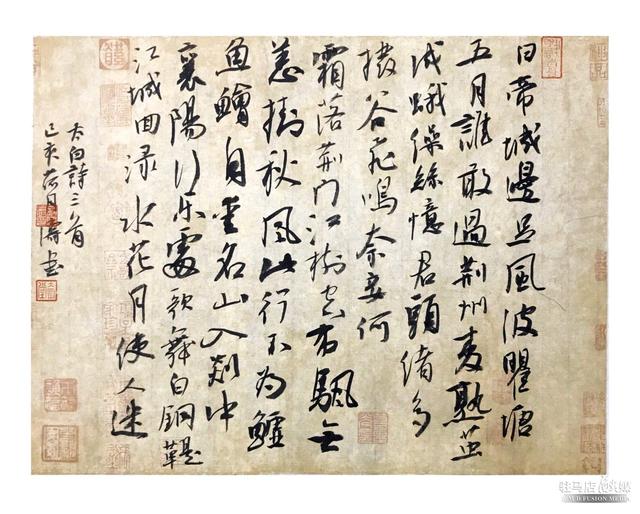 白帝城邊足風波瞿塘
五月誰敢過荊州麥熟繭
成蛾繰絲憶君頭緒多
撥谷飛鳴奈妾何
霜落荊門江樹空布颿無
恙掛秋風此行不為鱸
魚鱠自愛名山入剡中
襄陽行樂處歌舞白銅鞮
江城回渌水花月使人迷
太白詩三首
己亥荷月濤書
驻马店融媒